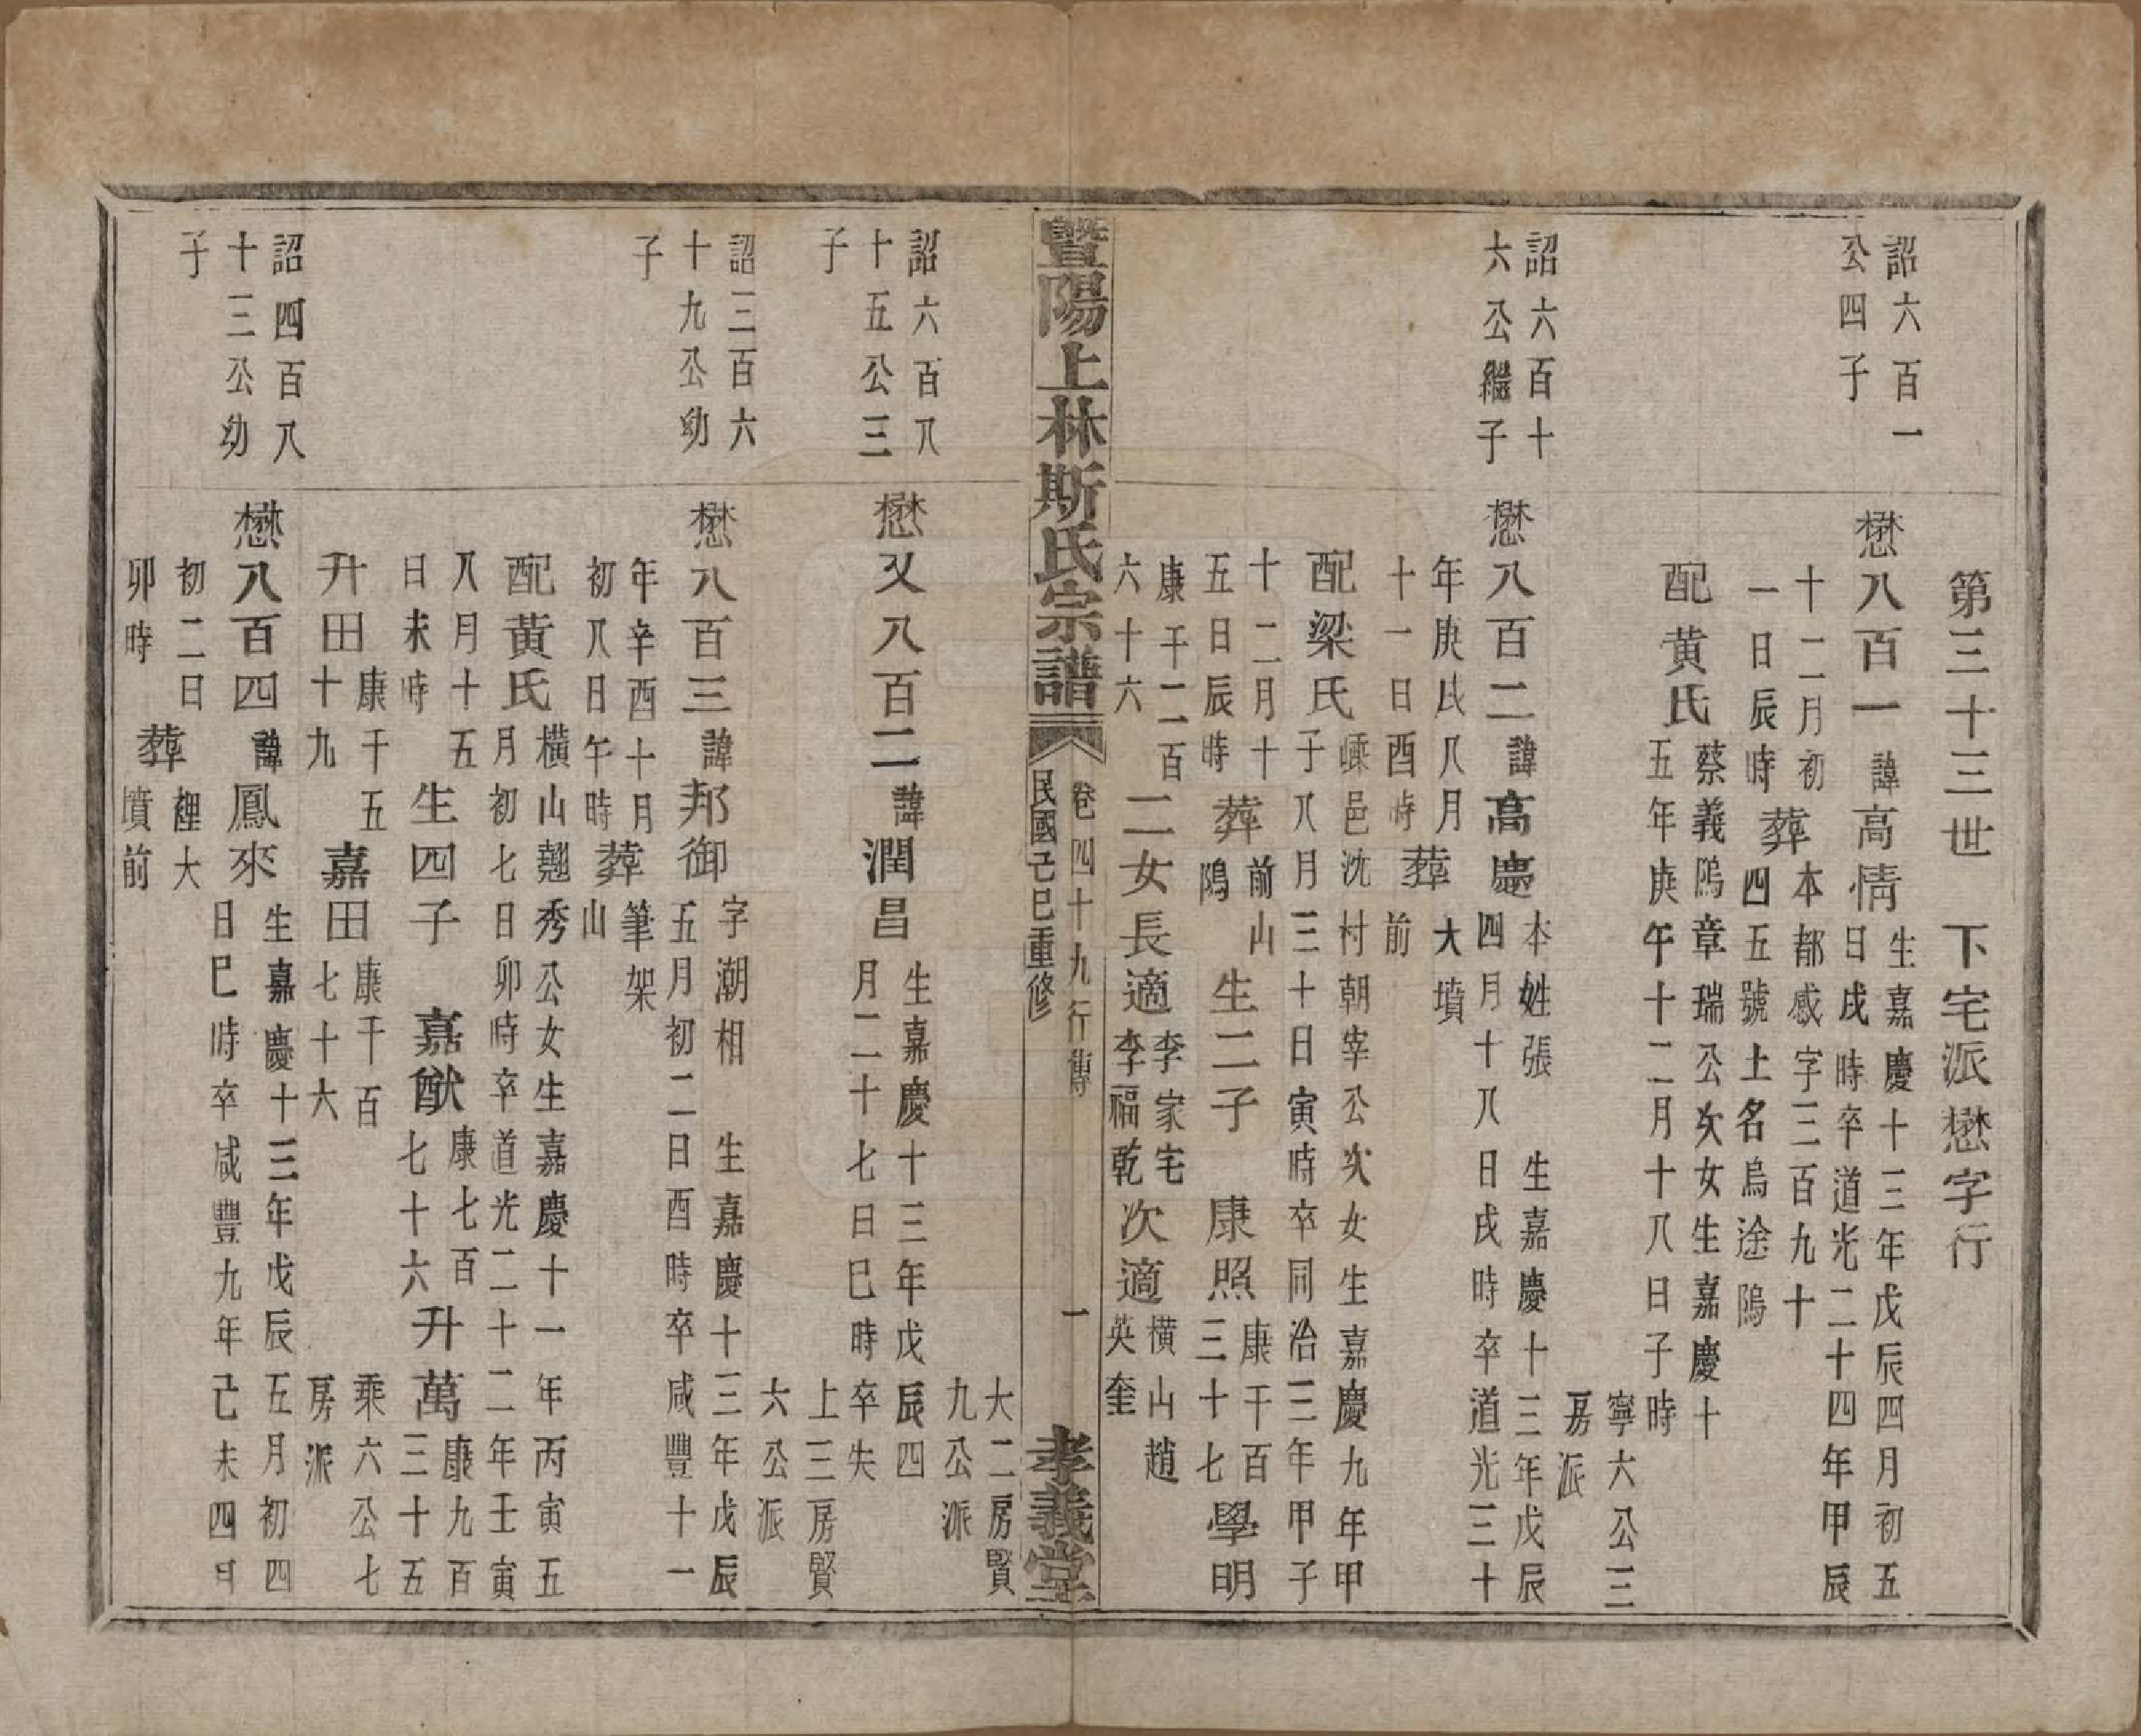 第三十三世　下宅派懋字行
詔六百一
公四子
懋八百一諱高情
生嘉慶十三年戊辰四月初五
日戌時卒道光二十四年甲辰
十二月初
一日辰時
葬
本都感字三百九十
四五號土名烏塗鴿
配黄氏
蔡義鴿章瑞公次女生嘉慶十
五年庚午十二月十八日子時
寧六公三
房派
詔六百十
六公繼子
懋八百二諱高慶
本姓張　生嘉慶十三年戊辰
四月十八日戌時卒道光三十
年庚戌八月
十一日酉時
葬
大墳
前
配梁氏
嵊邑沈村朝宰公次女生嘉慶九年甲
子八月三十日寅時卒同治三年甲子
十二月十
五日辰時
葬
前山
隖
生二子
康照
康千百
三十七
學明
康千二百
六十六
二女長適
李家宅
李福乾
次適
橫山趙
英奎
暨陽上林斯氏宗譜
卷四十九行傳
民國己巳重修
一
孝義堂
大二房賢
九公派
詔六百八
十五公三
子
懋又八百二諱潤昌
生嘉慶十三年戊辰四
月二十七日巳時卒失
上三房賢
六公派
詔三百六
十九公幼
子
懋八百三諱邦御
字潮相　生嘉慶十三年戊辰
五月初二日酉時卒咸豐十一
年辛酉十月
初八日午時
葬
筆架
山
配黃氏
橫山翹秀公女生嘉慶十一年丙寅五
月初七日卯時卒道光二十二年壬寅
八月十五
日未時
生四子
嘉猷
康七百
七十六
升萬
康九百
三十五
升田
康千五
十九
嘉田
康千百
七十六
乘六公七
房派
詔四百八
十三公幼
子
懋八百四諱鳳來
生嘉慶十三年戊辰五月初四
日巳時卒咸豐九年己未四月
初二日
卯時
葬
裡大
墳前